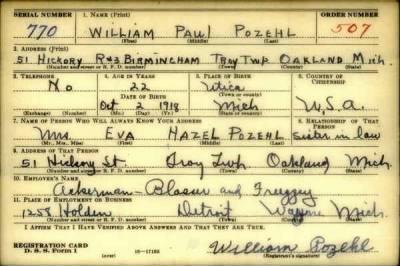 SERIAL NUMBER 1. NAME (Print) ORDER NUMBER
770 WILLIAM PAUL POZEHL 507
(First) (Middle) (Last)
2. ADDRESS (Print)
51 HICKORY R#3 BIRMINGHAM TROY TWP OAKLAND MICH.
(Number and street or R. F. D. number) (Town) (County) (State)
3. TELEPHONE 4. AGE IN YEARS 5. PLACE OF BIRTH 6. COUNTRY OF CITIZENSHIP
No 22 Utica
DATE OF BIRTH (Town or county)
Oct 2 1918 Mich U.S.A.
(Exchange) (Number) (Mo.) (Day) (Yr.) (State or country)
7. NAME OF PERSON WHO WILL ALWAYS KNOW YOUR ADDRESS 8. RELATIONSHIP OF THAT PERSON
Mrs. EVA HAZEL POZEHL sister in law
(Mr., Mrs., Miss) (First) (Middle) (Last)
9. ADDRESS OF THAT PERSON
51 Hickory St. Troy Twp. Oakland Mich.
(Number and street or R. F. D. number) (Town) (County) (State)
10. EMPLOYER'S NAME
Ackerman- and
11. PLACE OF EMPLOYMENT OR BUSINESS
1258 Holden Detroit Wayne Mich.
(Number and street or R. F. D. number) (Town) (County) (State)
I AFFIRM THAT I HAVE VERIFIED ABOVE ANSWERS AND THAT THEY ARE TRUE.
REGISTRATION CARD
D. S. S. Form 1 (over) 16—17105 William Pozehl
(Registrant's signature)